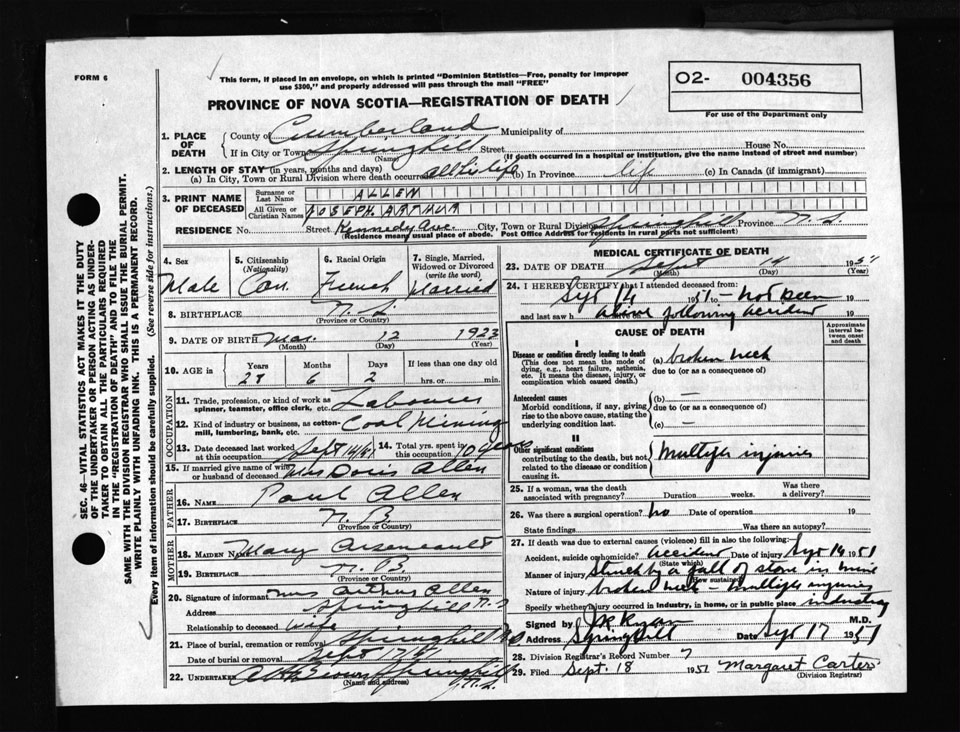 FORM 6
This form, if placed in an envelope, on which is printed "Dominion Statistics—Free, penalty for improper
use $300," and properly addressed will pass through the mail "FREE"
O2- 004356
For use of the Department only
PROVINCE OF NOVA SCOTIA—REGISTRATION OF DEATH
SEC. 46—VITAL STATISTICS ACT MAKES IT THE DUTY
OF THE UNDERTAKER OR PERSON ACTING AS UNDER-
TAKER TO OBTAIN ALL THE PARTICULARS REQUIRED
IN THE "REGISTRATION OF DEATH" AND TO FILE THE
SAME WITH THE DIVISION REGISTRAR WHO SHALL ISSUE THE BURIAL PERMIT.
WRITE PLAINLY WITH UNFADING INK. THIS IS A PERMANENT RECORD.
Every item of information should be carefully supplied. (See reverse side for instructions.)
1. PLACE OF DEATH
County of Cumberland Municipality of
If in City or Town Springhill Street House No.
(Name) (If death occurred in a hospital or institution, give the name instead of street and number)
2. LENGTH OF STAY (in years, months and days)
(a) In City, Town or Rural Division where death occurred All his life (b) In Province life (c) In Canada (if immigrant)
3. PRINT NAME OF DECEASED
Surname or Last Name ALLEN
All Given or Christian Names JOSEPH ARTHUR
RESIDENCE No. Street Kennedy Ave. City, Town or Rural Division Springhill Province N.S.
(Residence means usual place of abode. Post Office Address for residents in rural parts not sufficient)
4. Sex Male
5. Citizenship (Nationality) Can.
6. Racial Origin French
7. Single, Married, Widowed or Divorced (write the word) Married
8. BIRTHPLACE N.S.
(Province or Country)
9. DATE OF BIRTH Mar. 12 1923
(Month) (Day) (Year)
10. AGE in Years Months Days If less than one day old
28 6 2 hrs. or min.
OCCUPATION
11. Trade, profession, or kind of work as spinner, teamster, office clerk, etc. Labourer
12. Kind of industry or business, as cotton-mill, lumbering, bank, etc. Coal Mining
13. Date deceased last worked at this occupation Sept 14/51
14. Total yrs. spent in this occupation 10 years
15. If married give name of wife or husband of deceased Mrs Doris Allen
FATHER
16. Name Paul Allen
17. Birthplace N.B.
(Province or Country)
MOTHER
18. Maiden Name Mary Arseneault
19. Birthplace N.B.
(Province or Country)
20. Signature of informant Mrs Arthur Allen
Address Springhill N.S.
Relationship to deceased wife
21. Place of burial, cremation or removal Springhill N.S.
Date of burial or removal Sept 17/51
22. Undertaker Springhill N.S.
(Name and address)
MEDICAL CERTIFICATE OF DEATH
23. DATE OF DEATH Sept 14 1951
(Month) (Day) (Year)
24. I HEREBY CERTIFY that I attended deceased from:
Sept 14 1951 to not seen 19
and last saw h alive following accident 19
CAUSE OF DEATH
Approximate interval between onset and death
I
Disease or condition directly leading to death (a) broken neck
(This does not mean the mode of dying, e.g., heart failure, asthenia, etc. It means the disease, injury, or complication which caused death.) due to (or as a consequence of)
Antecedent causes (b) —
Morbid conditions, if any, giving rise to the above cause, stating the underlying condition last. due to (or as a consequence of)
(c) —
II
Other significant conditions contributing to the death, but not related to the disease or condition causing it. Multiple injuries
25. If a woman, was the death associated with pregnancy? Duration weeks. Was there a delivery?
26. Was there a surgical operation? No Date of operation 19
State findings Was there an autopsy?
27. If death was due to external causes (violence) fill in also the following:
Accident, suicide or homicide? Accident Date of injury Sept 14 1951
(State which)
Manner of injury Struck by a fall of stone in mine
(How sustained)
Nature of injury broken neck - multiple injuries
Specify whether injury occurred in industry, in home, or in public place industry
Signed by J.R. Ryan M.D.
Address Springhill Date Sept 17 1951
28. Division Registrar's Record Number 7
29. Filed Sept. 18 1951 Margaret Carter
(Division Registrar)